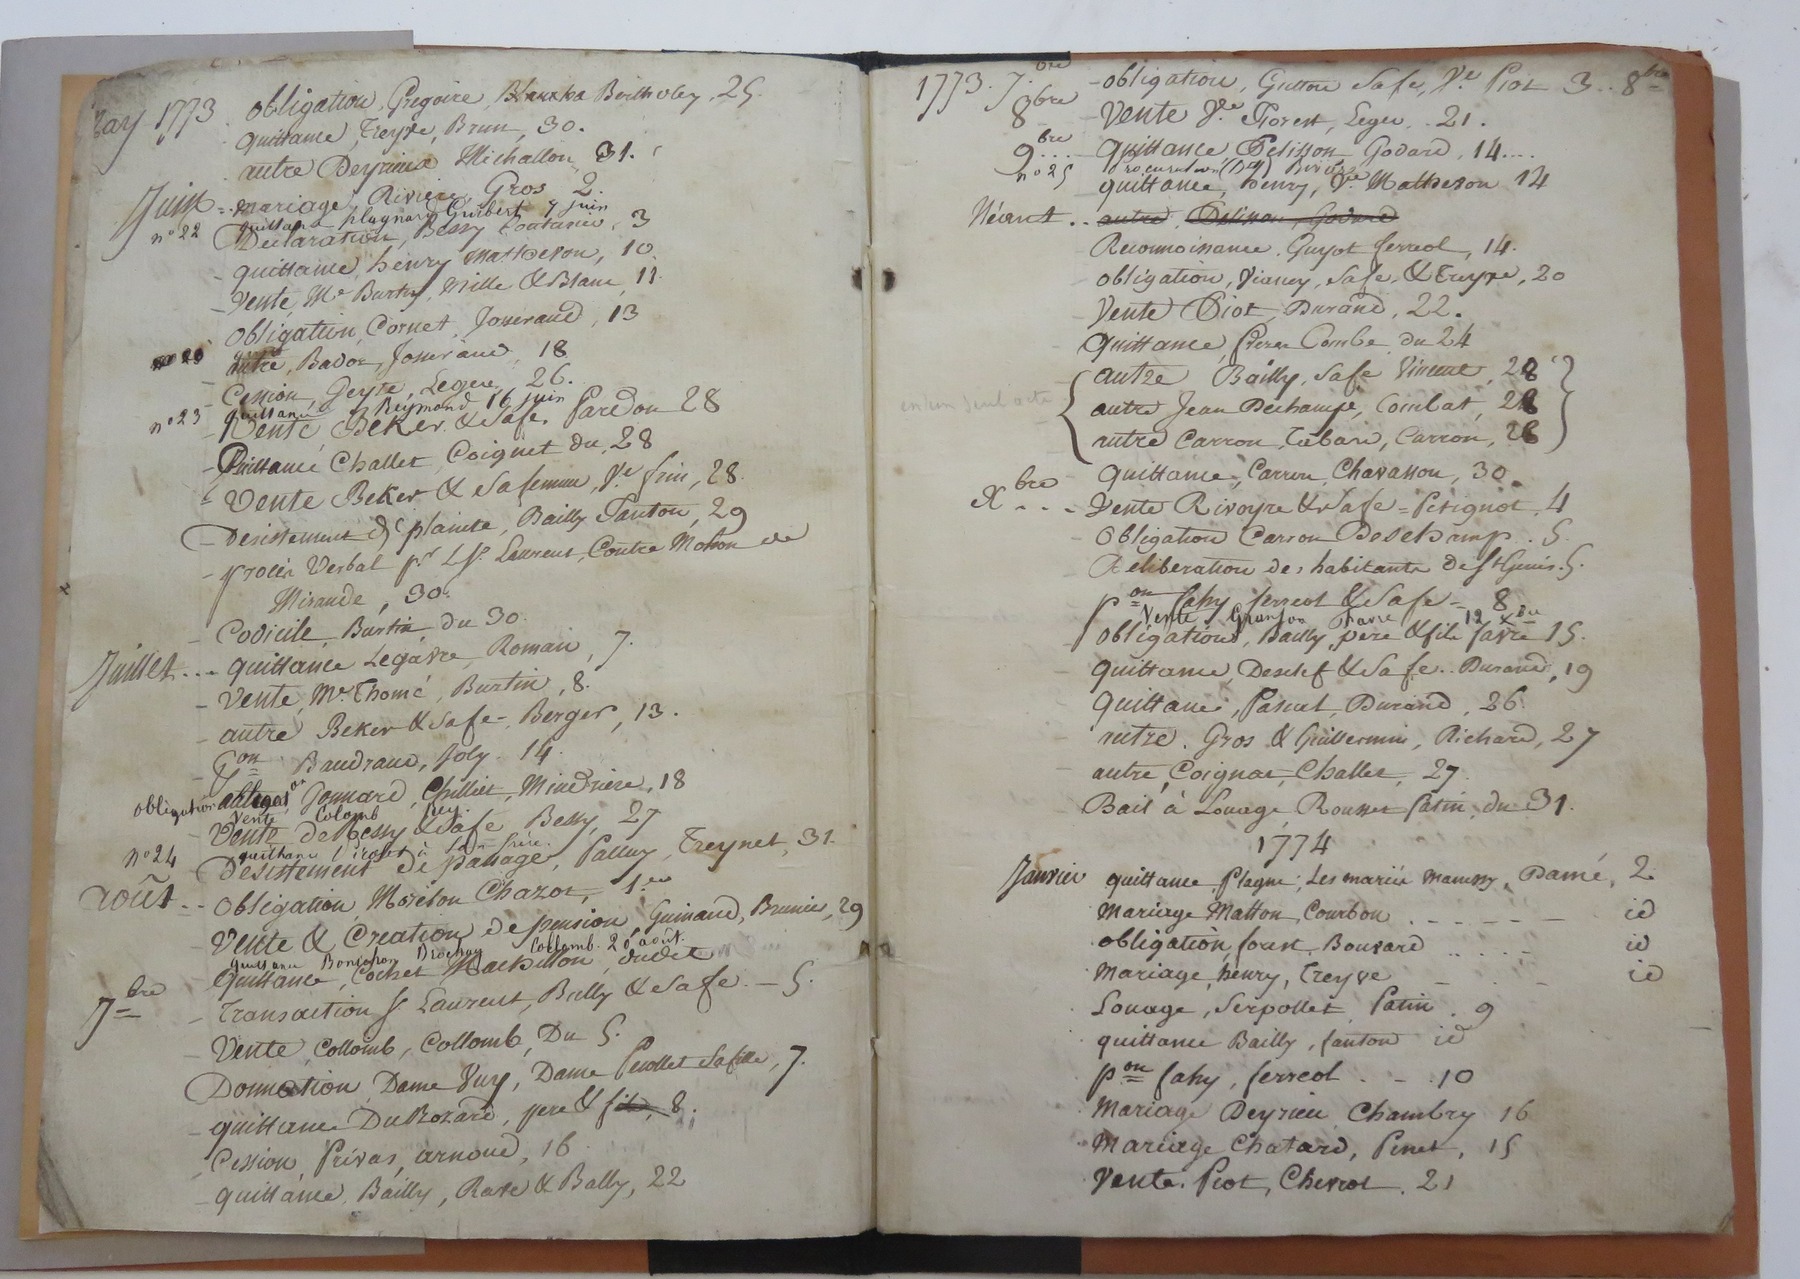 May 1773 obligation, Gregoire, Bertholey, 25.
quittance, Treyve, Brun, 30.
autre Deyrieux Michallon, 31.
Juin .. mariage, Rivière, Gros 2.
quittance plagnard Guibert 7 juin
n° 22 Déclaration, Bessy Couturier, 3
- quittance, henry Matheron, 10.
- Vente, Mr Burtin, Mille & Blanc, 11.
obligation, Cornet, Josserand, 13
autre, Bador, Josserand, 18
- Cession, Geyte, Legere, 26.
n° 23 quittance Reymond 16 juin
- Vente Beker & Safe, Paredon 28
- Quittance Challet, Coignet du, 28
- Vente Beker & Safemme, Ve fini, 28.
- Desistement de plainte, Bailly Fanton, 29
- procès Verbal pr Lse Laurent, Contre Mohon de
Mirande, 30.
- Codicile, Burtin, du 30.
Juillet ... quittance Legavre, Romain, 7.
- Vente, Mr Thomé, Burtin, 8.
- autre Beker & Safe, Berger, 13.
- pon Baudrand, Joly. 14.
obligation Jonnard, Chillier, Mindrière, 18
Vente Colomb Rey.
Vente de Bessy & Safe, Bessy, 27
n° 24 quittance Pirollet à Son frère.
Désistement de passage, Palluy, Treynet, 31.
août .. obligation, Moreton Chazot, 1.er
Vente & Creation de pension, Guinand, Brunier, 29
quittance Bonjason Drochay Collomb. 26 août.
Quittance, Cochet, Machillon, dudit
7bre - Transaction St Laurent, Bully & Safe - 5.
Vente, Collomb, Collomb, Du 5.
Donnation, Dame Vuy, Dame Peollet Safille, 7.
- quittance DuRozard, pere & fils, 8.
Cession, Privas, arnoud, 16
- quittance, Bailly, Rave & Bally, 22
1773. 7.bre - obligation, Gutton Safe, Ve Piot 3.. 8bre
8bre - Vente Ve Florest, Leger .. 21.
9bre .... - Quittance, Pelisson Godard, 14....
n° 25 procuration
quittance, henry, Ve Matheron 14
Néant .. autre, Pelisson, Godard
Reconnoissance, Guyot ferreol, 14.
- obligation, Vianey, Safe, & Treyve, 20
Vente Piot, Durand, 22.
Quittance, freres Combe du 24
autre Bailly, Safe Vincent, 28
en un seul acte autre Jean Dechamps, Combat, 28
autre Carron, Tabard, Carron, 28
Quittance, Carron, Chavasson, 30.
Xbre ... - Vente Rivoyre & Safe = Petignot, 4
- obligation Carron Deschamp. 5.
Deliberation des habitants de St Genis. 5.
pon fahy ferreol & Safe - 8
Vente Granjon Favre 12 Xbre
obligation, Bailly, pere & fils favre 15.
- quittance, Desclef & Safe.. Durand, 19
Quittance, Pascal, Durand, 26.
autre. Gros & Guillermin, Richard, 27
autre, Coignat, Challet, 27.
Bail à Louage, Rousset fatin, du 31.
1774
Janvier quittance, Plagne, Les mariés Mamessy, Damé, 2
Mariage Matton, Courbon ...... id
obligation, forest, Bouvard .... id
Mariage, henry, Treyve - . - id
Louage, Serpollet, Patin. 9
quittance Bailly, fanton id
pon fahy, ferreol . - 10
Mariage Deyrieu Chambry 16
Mariage Chatard, Pinet, 15
Vente. Piot, Chevrot. 21